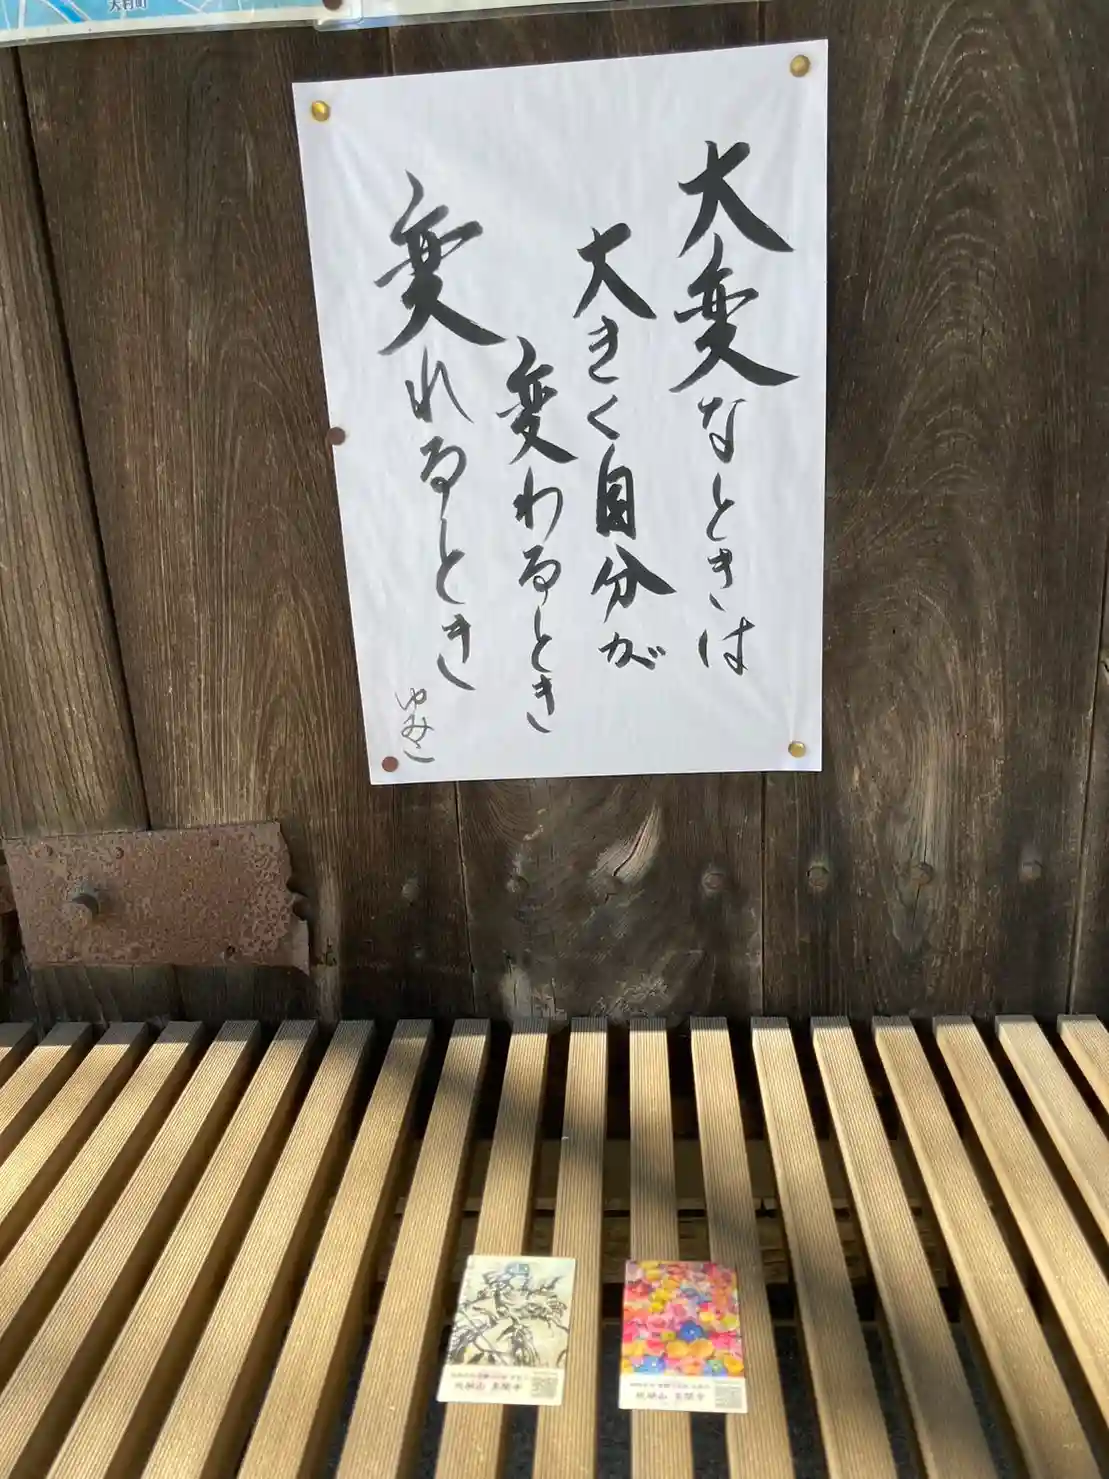 大村町
大変なときは
大きく自分が
変わるとき
変れるとき
ゆみこ